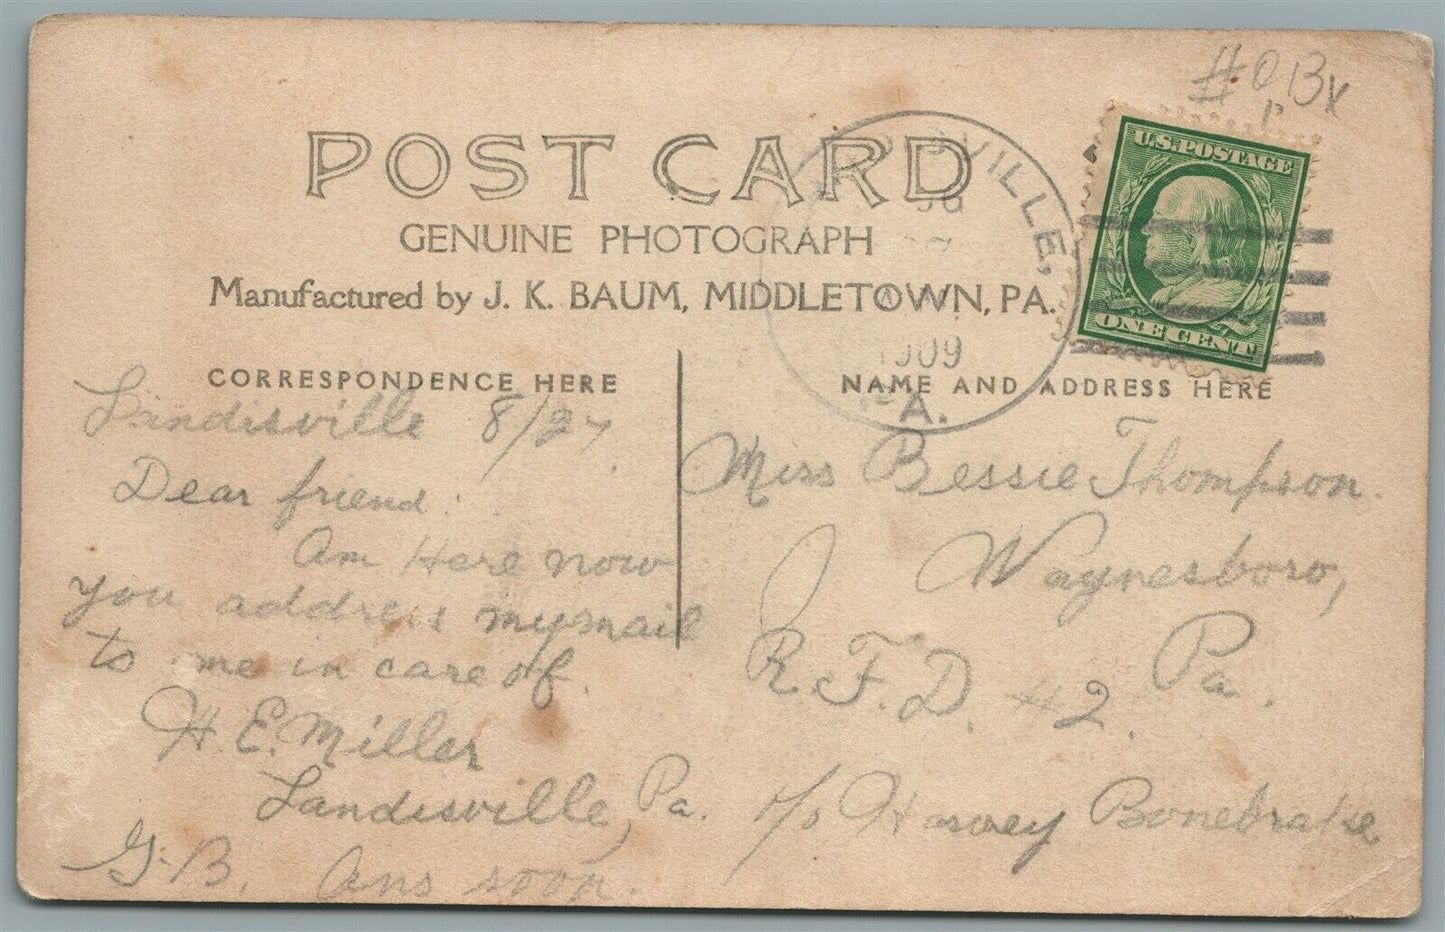 POST CARD
GENUINE PHOTOGRAPH
Manufactured by J. K. BAUM, MIDDLETOWN, PA.
CORRESPONDENCE HERE
Landisville 8/27
Dear friend:
Am Here now
you address my mail
to me in care of
H. E. Miller
Landisville, Pa.
G.B. Ans soon.
NAME AND ADDRESS HERE
Miss Bessie Thompson.
Waynesboro,
Pa.
R.F.D. #2.
c/o Harvey Bonebrake
U.S. POSTAGE
ONE CENT
VILLE,
1909
PA.